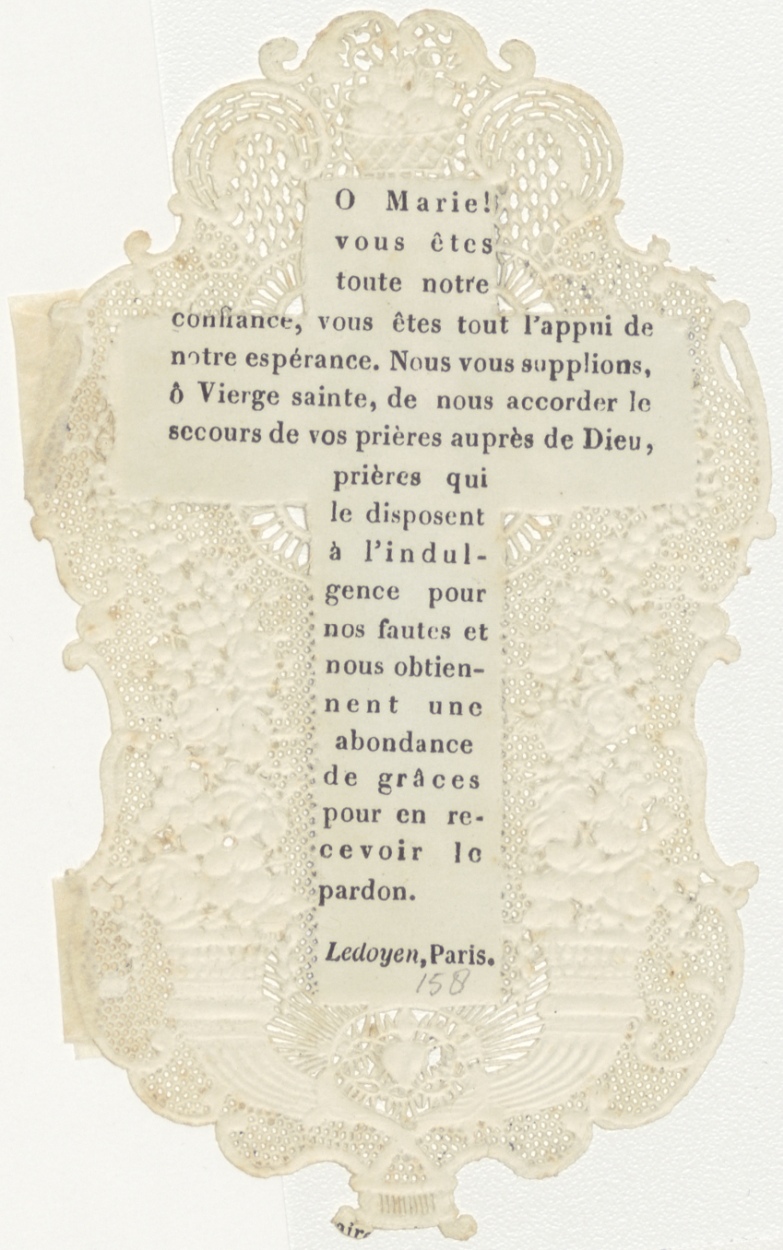 O Marie!
vous êtes
toute notre
confiance, vous êtes tout l'appui de
notre espérance. Nous vous supplions,
ô Vierge sainte, de nous accorder le
secours de vos prières auprès de Dieu,
prières qui
le disposent
à l'indul-
gence pour
nos fautes et
nous obtien-
nent une
abondance
de grâces
pour en re-
cevoir le
pardon.
Ledoyen, Paris.
158